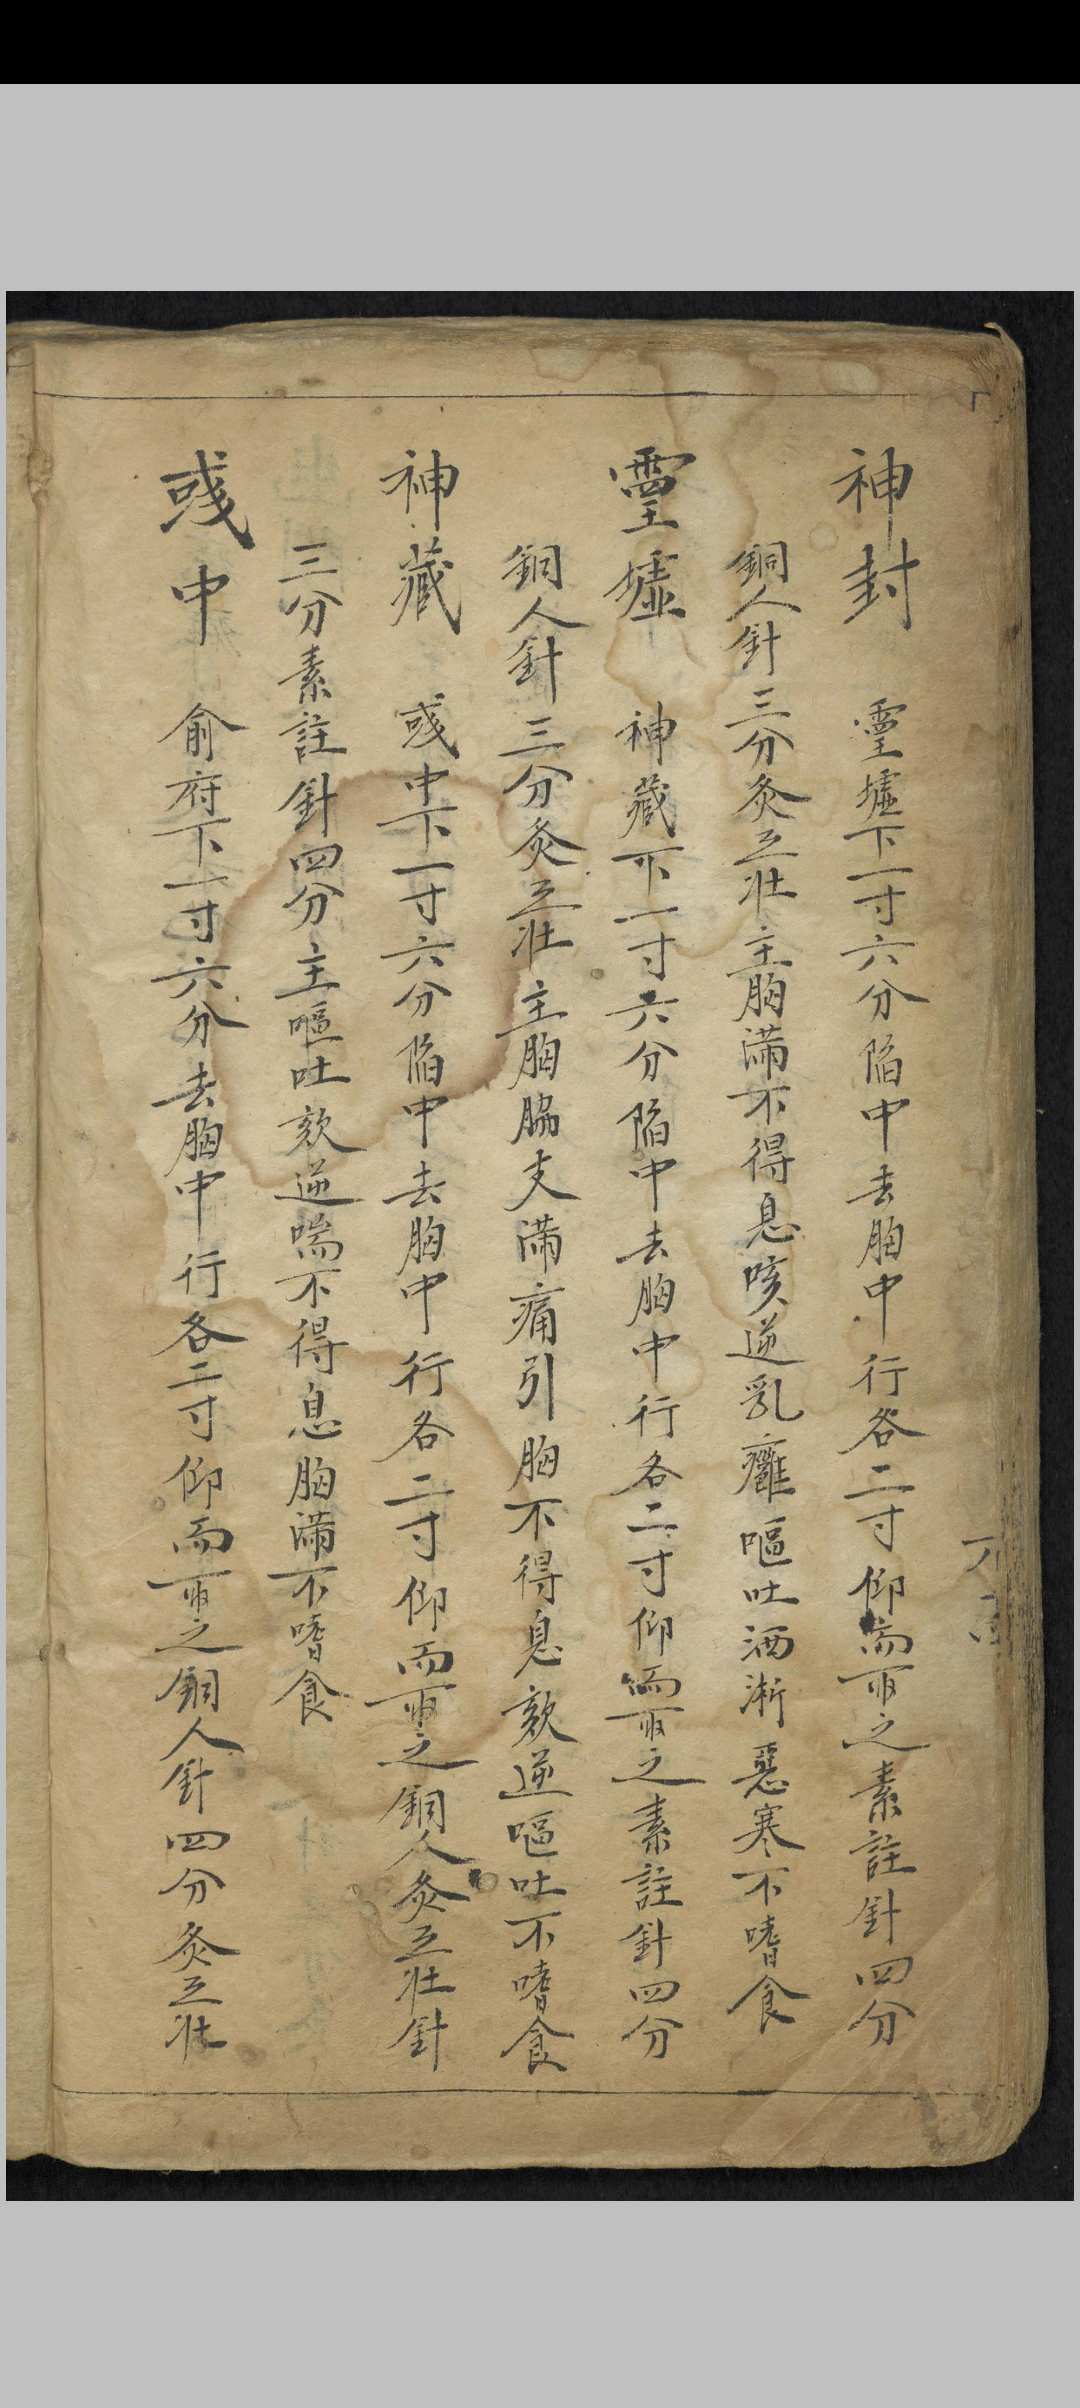 神封　靈墟下一寸六分陷中去胸中行各二寸仰而取之素註針四分
銅人針三分灸五壯主胸滿不得息咳逆乳癰嘔吐洒淅惡寒不嗜食
靈墟　神藏下一寸六分陷中去胸中行各二寸仰而取之素註針四分
銅人針三分灸五壯主胸脇支滿痛引胸不得息欬逆嘔吐不嗜食
神藏　彧中下一寸六分陷中去胸中行各二寸仰而取之銅人灸五壯針
三分素註針四分主嘔吐欬逆喘不得息胸滿不嗜食
彧中　俞府下一寸六分去胸中行各二寸仰而取之銅人針四分灸五壯